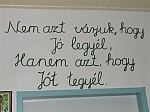 Nem azt várjuk, hogy
Jó legyél,
Hanem azt, hogy
Jót tegyél.